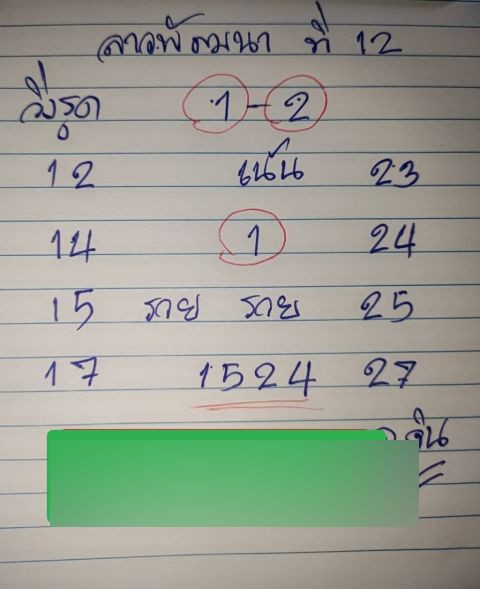 ลาวพัฒนา ที่ 12
วิ่งรูด 1 - 2
12 เน้น 23
14 1 24
15 รวย รวย 25
17 1524 27